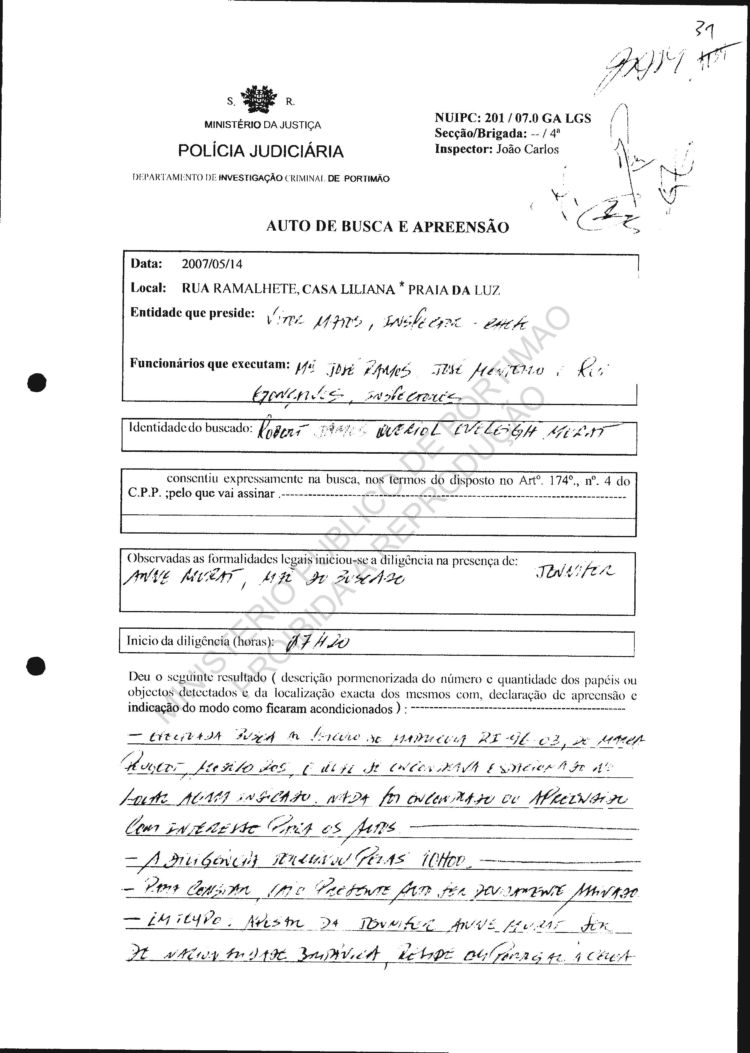 31
S. R.
MINISTÉRIO DA JUSTIÇA
POLÍCIA JUDICIÁRIA
DEPARTAMENTO DE INVESTIGAÇÃO CRIMINAL DE PORTIMÃO
NUIPC: 201 / 07.0 GA LGS
Secção/Brigada: -- / 4ª
Inspector: João Carlos
AUTO DE BUSCA E APREENSÃO
Data: 2007/05/14
Local: RUA RAMALHETE, CASA LILIANA * PRAIA DA LUZ
Entidade que preside: VITOR MATOS, INSPECTOR - CHEFE
Funcionários que executam: Mª JOSÉ RAMOS JOSÉ MONTEIRO E RUI
GONÇALVES, INSPECTORES
Identidade do buscado: ROBERT JAMES QUERIOL EVELEIGH MURAT
consentiu expressamente na busca, nos termos do disposto no Artº. 174º., nº. 4 do
C.P.P. ;pelo que vai assinar .--------------------------------------------------
Observadas as formalidades legais iniciou-se a diligência na presença de: JENNIFER
ANNE MURAT, MÃE DO BUSCADO
Inicio da diligência (horas): 07H20
Deu o seguinte resultado ( descrição pormenorizada do número e quantidade dos papéis ou
objectos detectados e da localização exacta dos mesmos com, declaração de apreensão e
indicação do modo como ficaram acondicionados ) : --------------------------------
- EFECTUADA BUSCA AO VEICULO DE MATRICULA DE MARCA
PEUGEOT, MODELO 205, E QUE SE ENCONTRAVA ESTACIONADO NO
LOCAL ACIMA INDICADO. NADA FOI ENCONTRADO OU APREENDIDO
COM INTERESSE PARA OS AUTOS
- A DILIGÊNCIA TERMINOU PELAS 10H00.
- PARA CONSTAR, VAI O PRESENTE AUTO SER DEVIDAMENTE ASSINADO
- EM TEMPO: APESAR DA JENNIFER ANNE MURAT SER
DE NACIONALIDADE BRITÂNICA, RESIDE EM PORTUGAL À CERCA
MINISTÉRIO PÚBLICO DE PORTIMÃO
PROIBIDA A REPRODUÇÃO